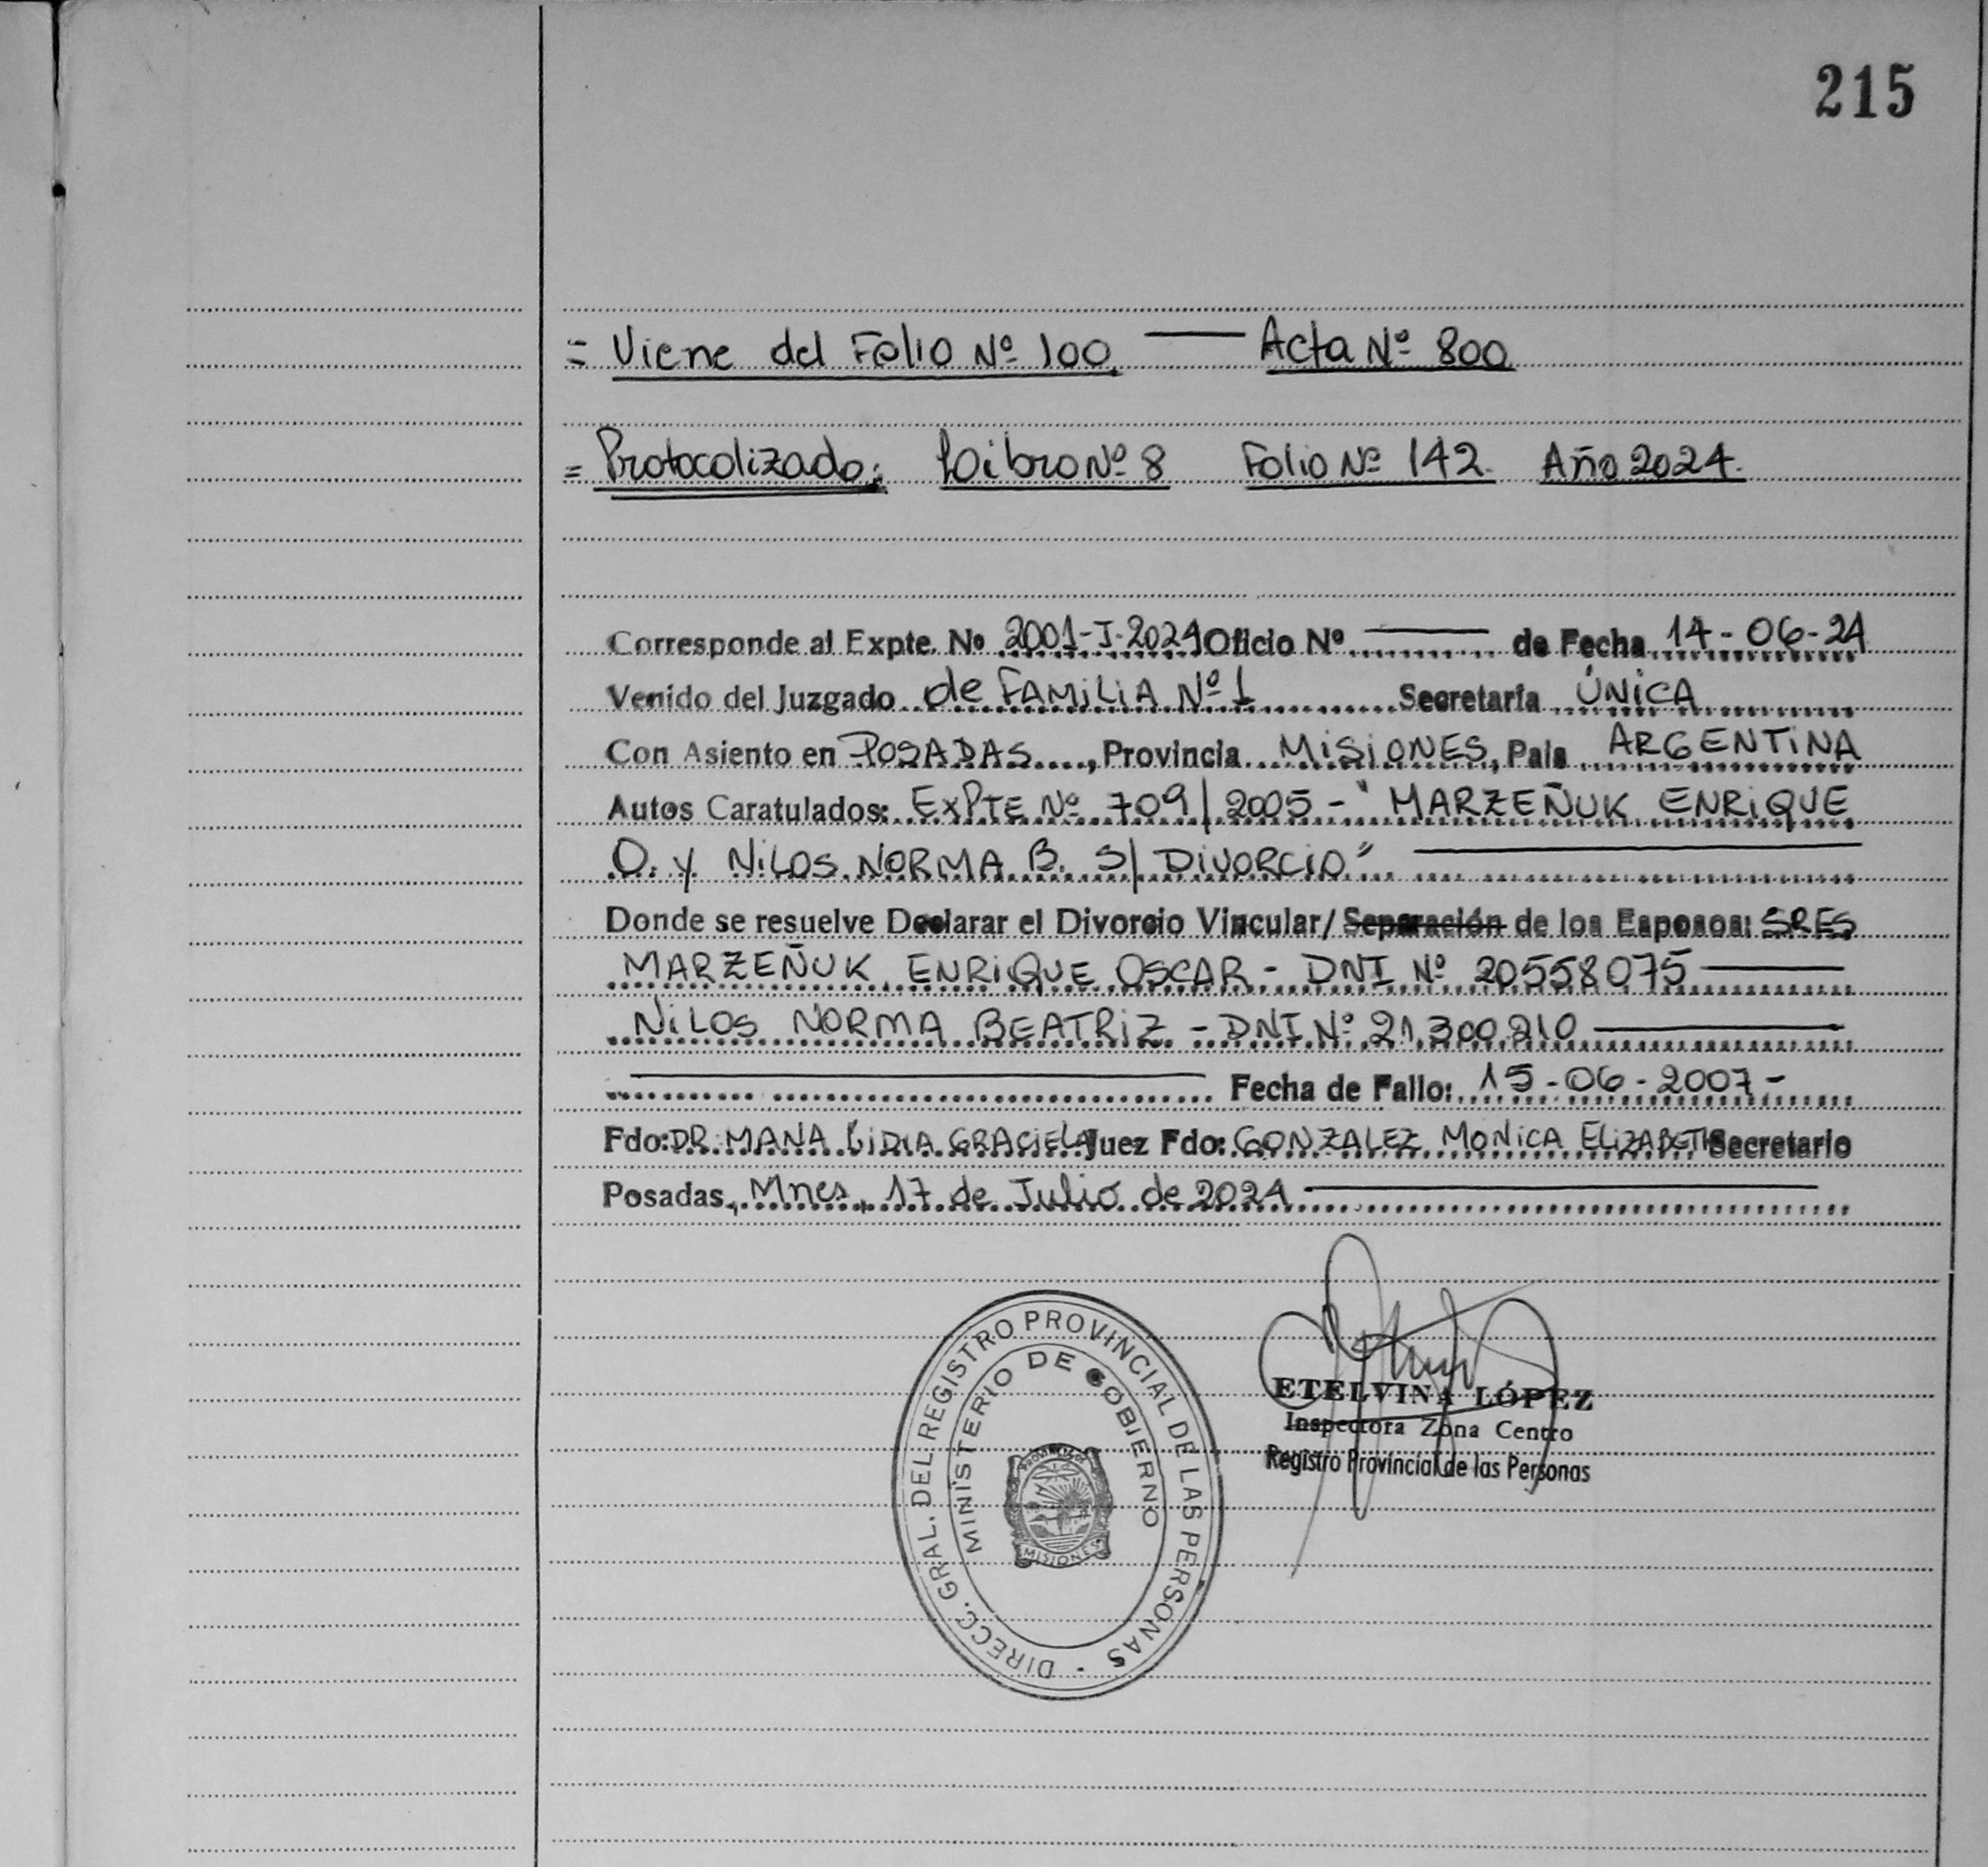 215
= Viene del Folio Nº 100. — Acta Nº 800
= Protocolizado: Libro Nº 8 Folio Nº 142. Año 2024.
Corresponde al Expte. Nº 2001-I-2024 Oficio Nº ——— de Fecha 14-06-24
Venido del Juzgado de FAMILIA Nº 1 Secretaría ÚNICA
Con Asiento en POSADAS, Provincia MISIONES, País ARGENTINA
Autos Caratulados: EXPTE Nº 709/2005 - "MARZEÑUK ENRIQUE
O. y NILOS NORMA B. S/ DIVORCIO" ———
Donde se resuelve Declarar el Divorcio Vincular/ Separación de los Esposos: SRES
MARZEÑUK ENRIQUE OSCAR - DNI Nº 20558075 ———
NILOS NORMA BEATRIZ - DNI Nº 21.300.210 ———
——— Fecha de Fallo: 15-06-2007-
Fdo: DR. MANA LIDIA GRACIELA Juez Fdo: GONZALEZ MONICA ELIZABETH Secretario
Posadas, Mnes, 17 de Julio de 2024 ———
DIRECC. GRAL. DEL REGISTRO PROVINCIAL DE LAS PERSONAS -
MINISTERIO DE GOBIERNO
MISIONES
ETELVINA LÓPEZ
Inspectora Zona Centro
Registro Provincial de las Personas